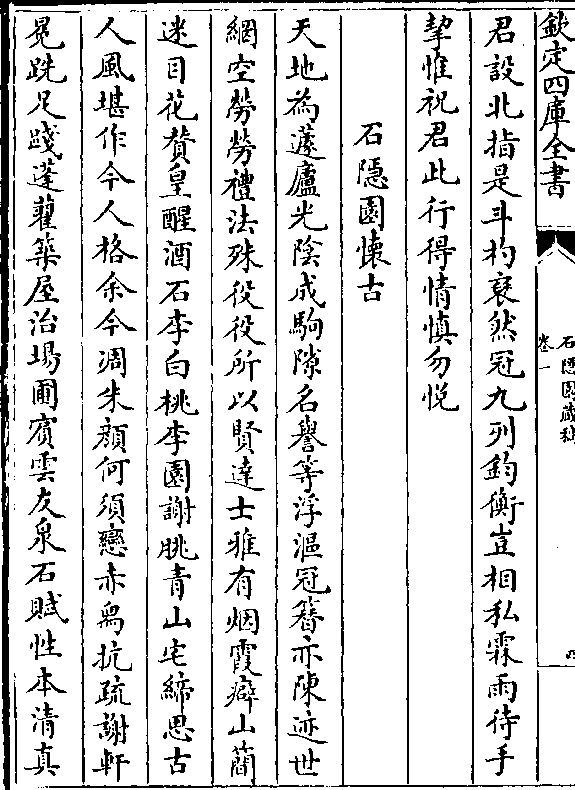 欽定四庫全書
石隱園藏稿
卷一
四
君設北指是斗杓裒然冠九列鈞衡豈相私霖雨待手
挈惟祝君此行得情慎勿悅
石隱園懷古
天地為蘧廬光陰成駒隙名譽等浮漚冠簪亦陳迹世
網空勞勞禮法殊役役所以賢達士雅有烟霞癖山蘭
迷目花贊皇醒酒石李白桃李園謝朓青山宅締思古
人風堪作今人格余今凋朱顏何須戀赤舄抗疏謝軒
冕跣足踐蓬藋築屋治場圃賓雲友泉石賦性本清真